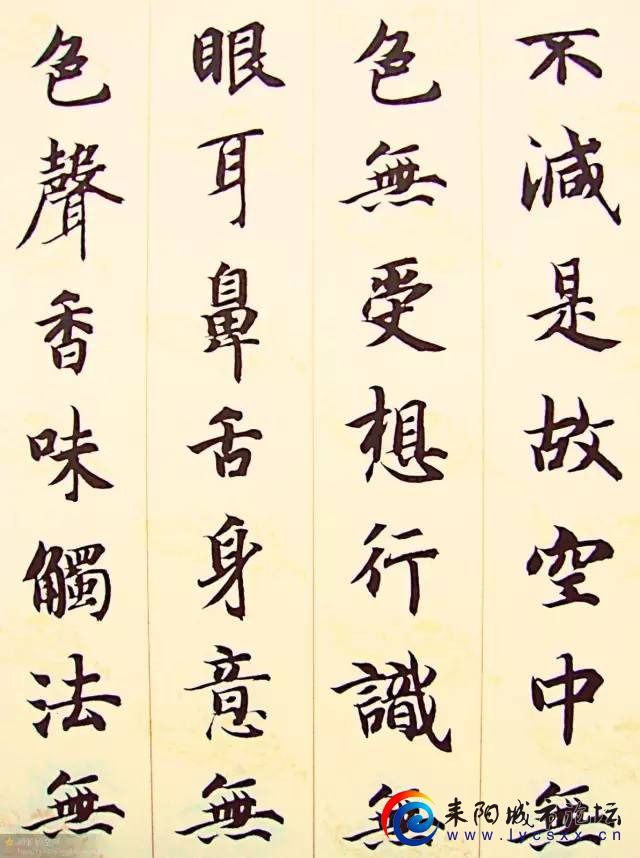 不減是故空中無
色無受想行識無
眼耳鼻舌身意無
色聲香味觸法無
耒阳城市论坛
www.lycsxx.cn